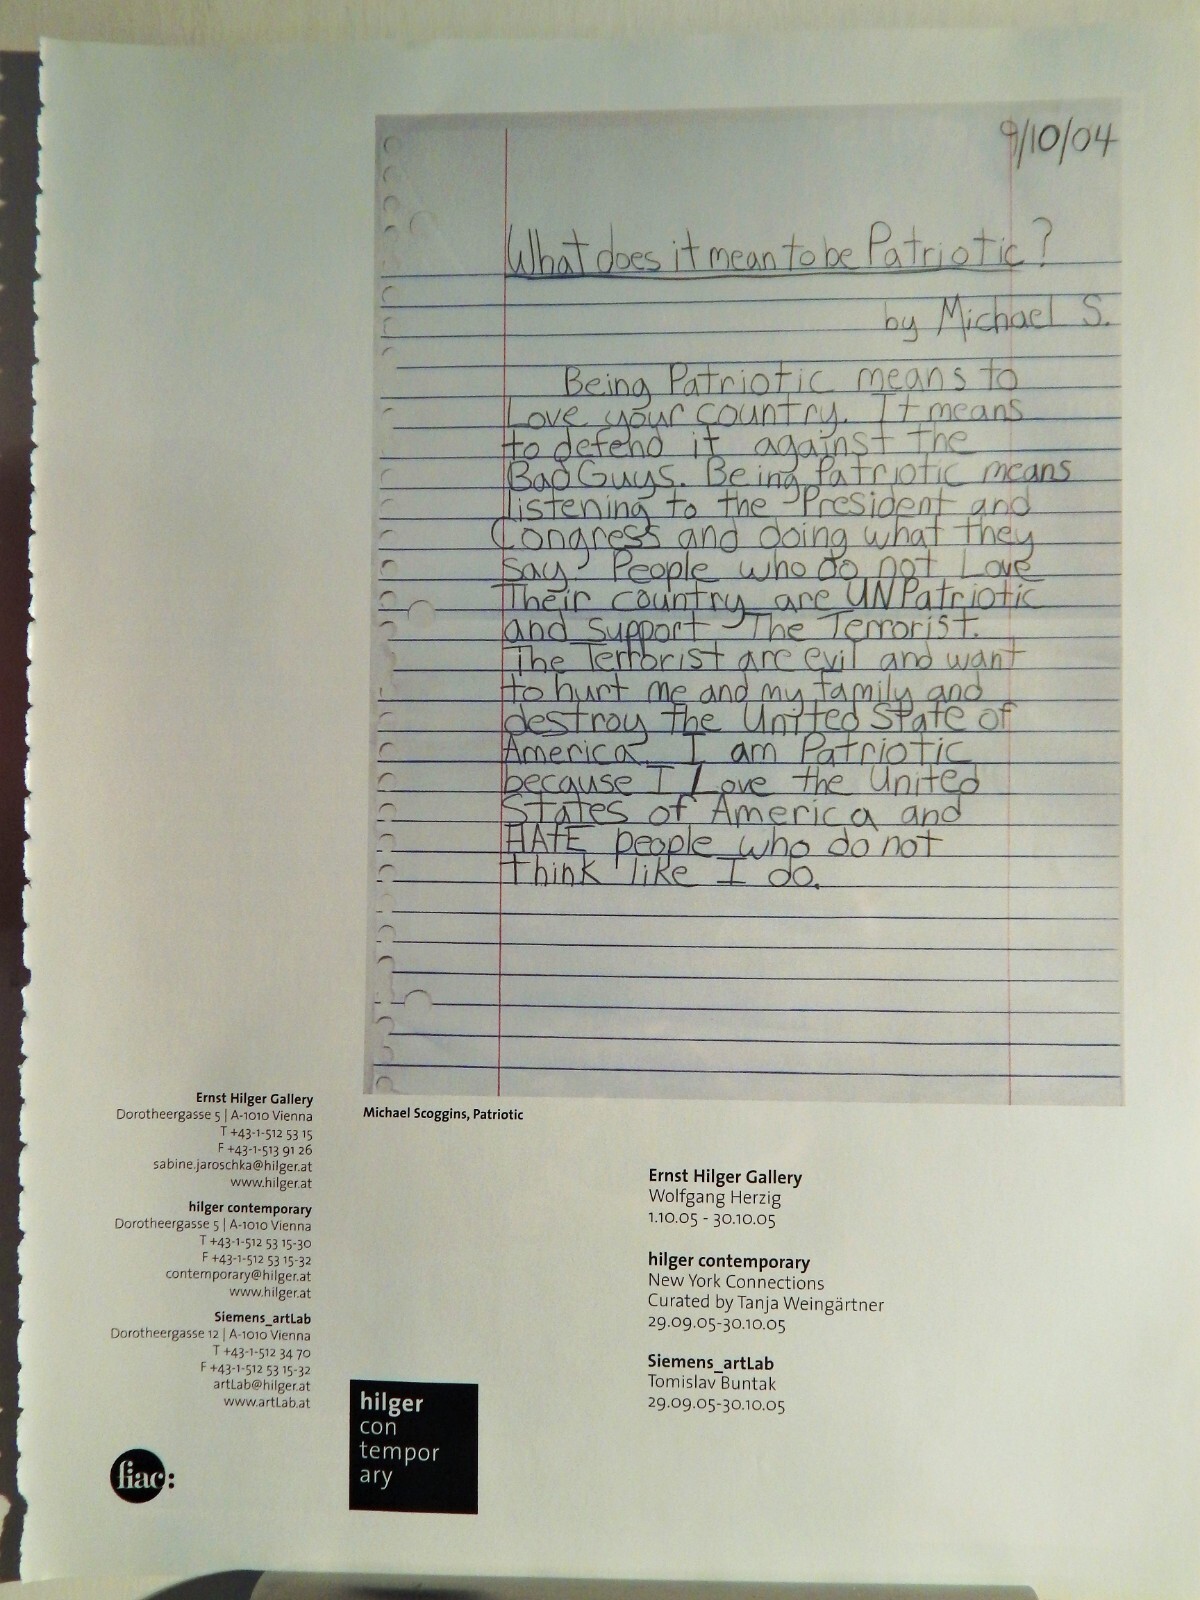 9/10/04
What does it mean to be Patriotic?
by Michael S.
Being Patriotic means to
Love your country. It means
to defend it against the
Bad Guys. Being Patriotic means
listening to the President and
Congress and doing what they
say. People who do not Love
Their country are UNPatriotic
and support The Terrorist.
The Terrorist are evil and want
to hurt me and my family and
destroy the United State of
America. I am Patriotic
because I Love the United
States of America and
HATE people who do not
think like I do.
Michael Scoggins, Patriotic
Ernst Hilger Gallery
Dorotheergasse 5 | A-1010 Vienna
T +43-1-512 53 15
F +43-1-513 91 26
sabine.jaroschka@hilger.at
www.hilger.at
hilger contemporary
Dorotheergasse 5 | A-1010 Vienna
T +43-1-512 53 15-30
F +43-1-512 53 15-32
contemporary@hilger.at
www.hilger.at
Siemens_artLab
Dorotheergasse 12 | A-1010 Vienna
T +43-1-512 34 70
F +43-1-512 53 15-32
artLab@hilger.at
www.artLab.at
fiac:
hilger
con
tempor
ary
Ernst Hilger Gallery
Wolfgang Herzig
1.10.05 - 30.10.05
hilger contemporary
New York Connections
Curated by Tanja Weingärtner
29.09.05-30.10.05
Siemens_artLab
Tomislav Buntak
29.09.05-30.10.05